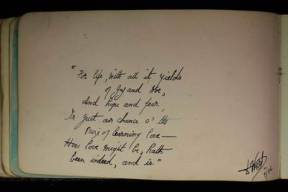 "For life, with all it yields
of Joy and Woe,
And hope and fear
Is just our chance o' the
Prize of learning love—
How love might be, hath
been indeed, and is."